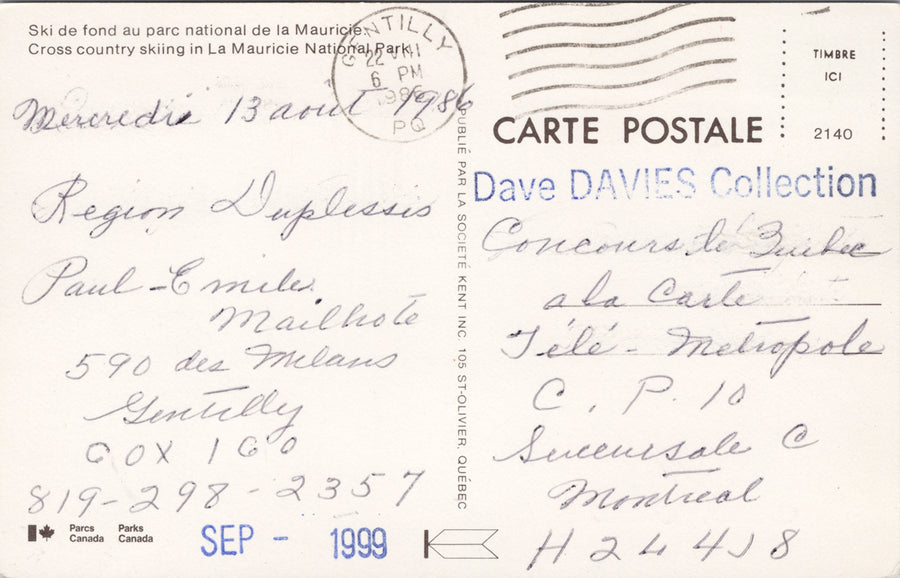 Ski de fond au parc national de la Mauricie
Cross country skiing in La Mauricie National Park
GENTILLY
22 VIII
6 PM
1986
PQ
TIMBRE
ICI
2140
CARTE POSTALE
Dave DAVIES Collection
Mercredi 13 aout 1986
Région Duplessis
Paul-Emile
Mailhote
590 des Milans
Gentilly
G0X 1G0
819-298-2357
Parcs Canada
Parks Canada
SEP - 1999
PUBLIÉ PAR LA SOCIÉTÉ KENT INC. 105 ST-OLIVIER, QUÉBEC
Concours le Quebec
a la Carte
Télé-Metropole
C.P. 10
Succursale C
Montreal
H2L 4J8